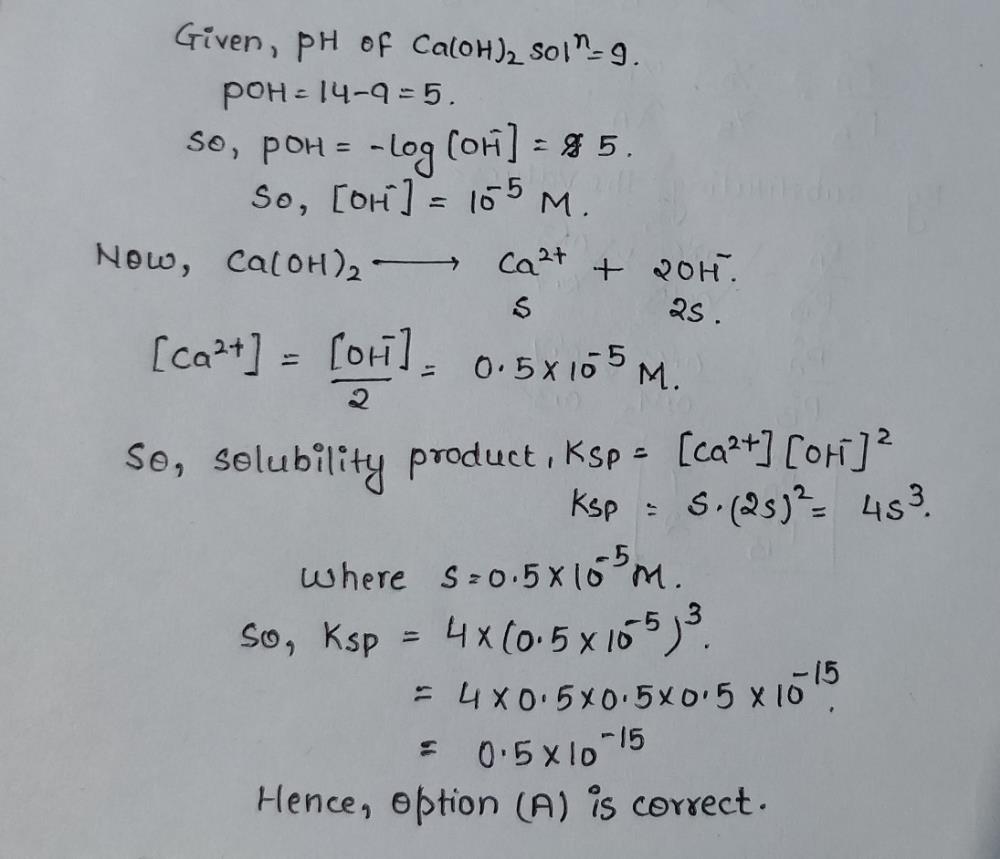 Given, pH of Ca(OH)₂ solⁿ = 9.
pOH = 14-9 = 5.
So, pOH = -log [OH⁻] = 5.
So, [OH⁻] = 10⁻⁵ M.
Now, Ca(OH)₂ ⟶ Ca²⁺ + 2OH⁻.
S 2S.
[Ca²⁺] = [OH⁻]/2 = 0.5 × 10⁻⁵ M.
So, solubility product, Ksp = [Ca²⁺] [OH⁻]²
Ksp = S.(2S)² = 4S³.
Where S = 0.5 × 10⁻⁵ M.
So, Ksp = 4 × (0.5 × 10⁻⁵)³.
= 4 × 0.5 × 0.5 × 0.5 × 10⁻¹⁵.
= 0.5 × 10⁻¹⁵
Hence, option (A) is correct.